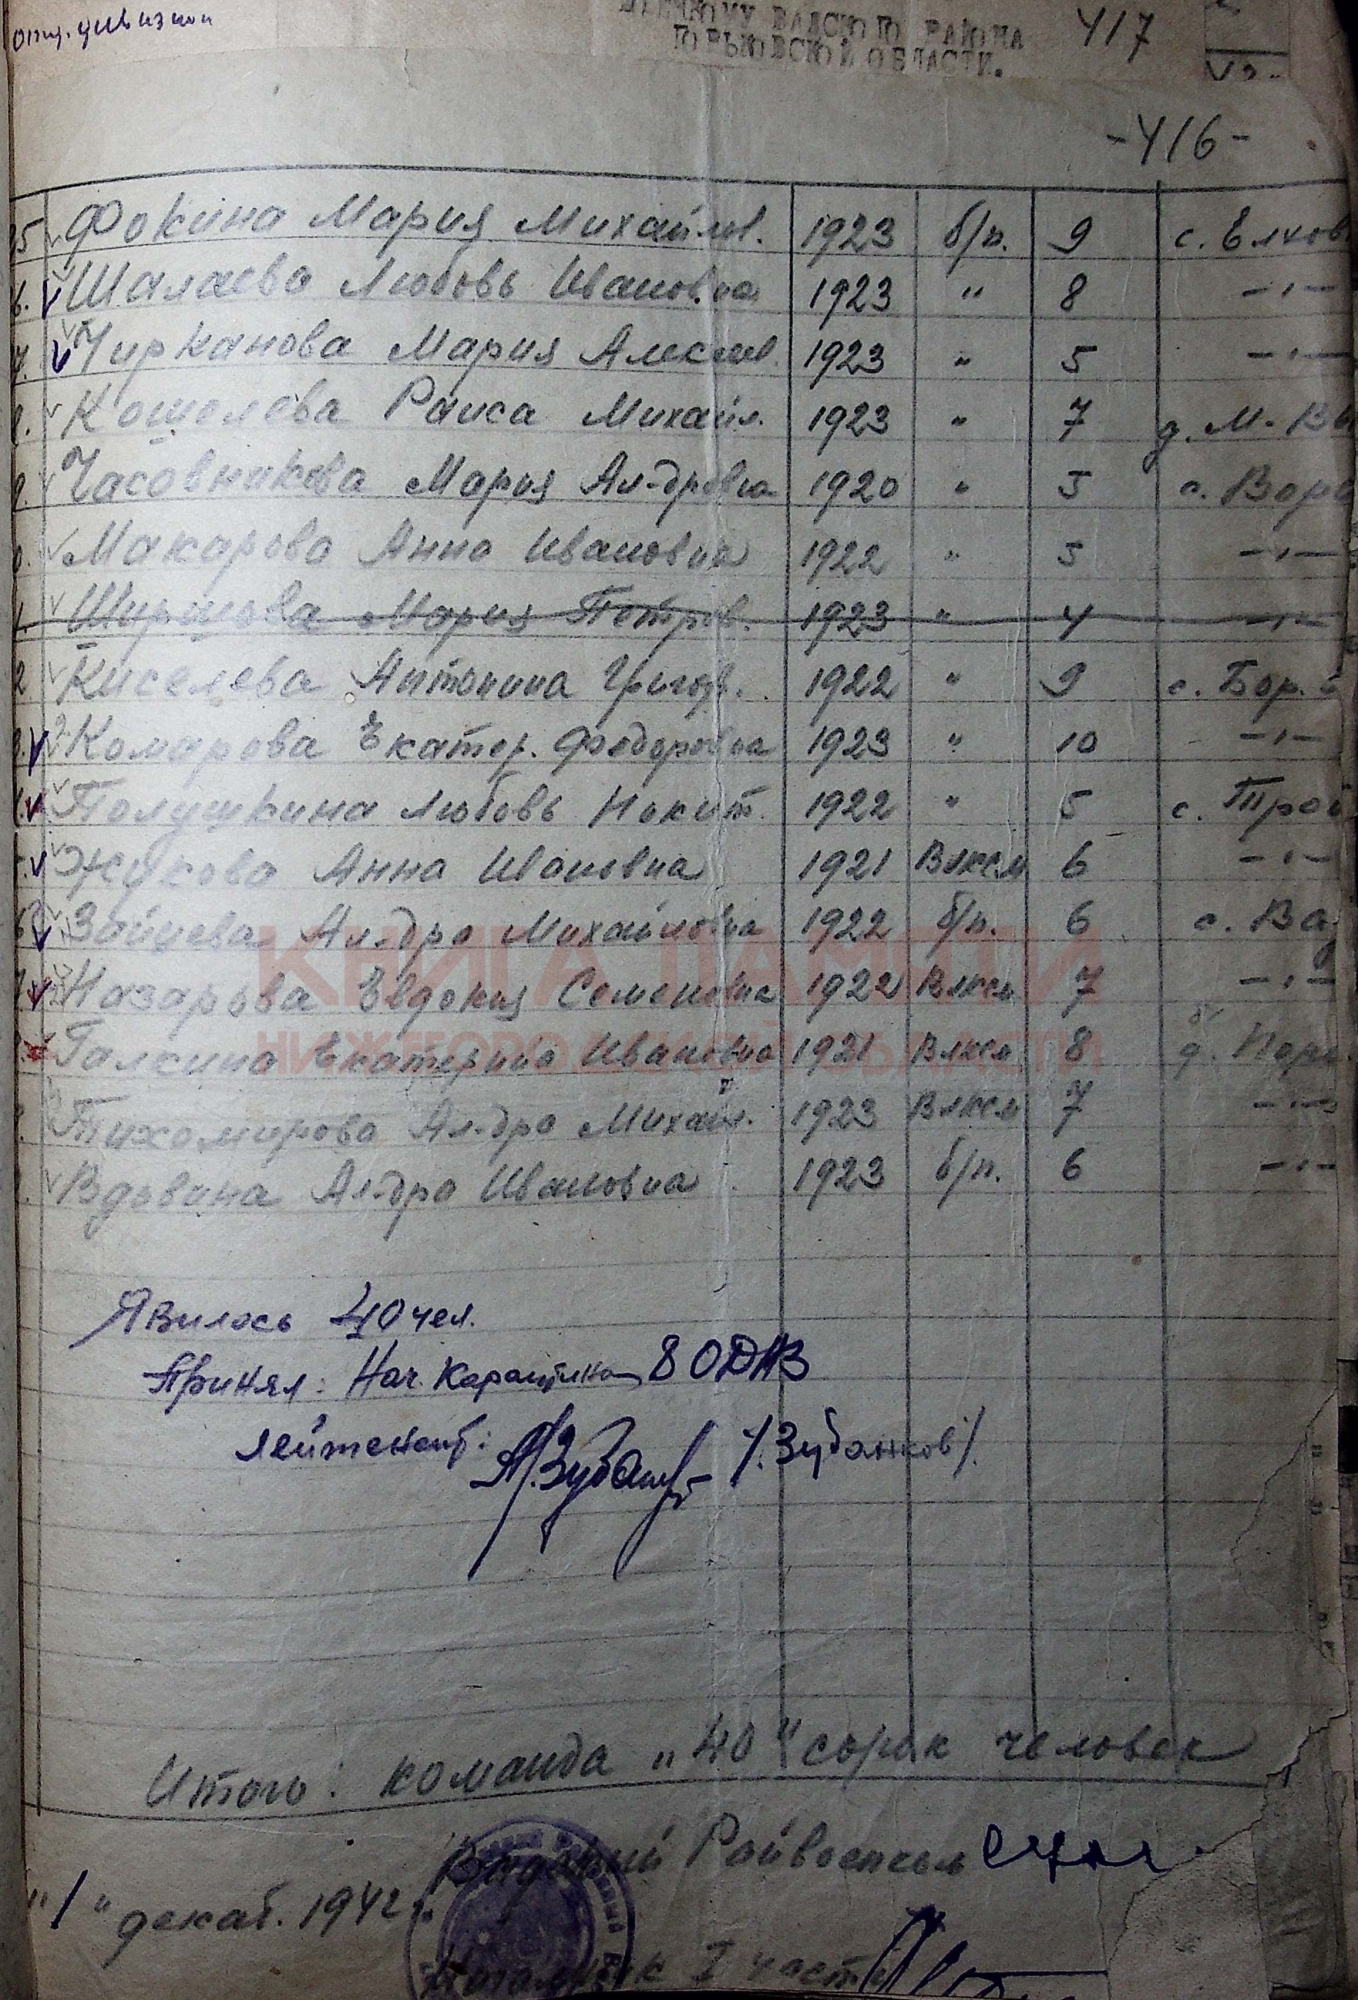 отд. дивизион
ВАДСКОГО РАЙОНА
ГОРЬКОВСКОЙ ОБЛАСТИ.
417
-416-
Фокина Мария Михайлов. 1923 б/п. 9 с. Елхов
6. Шалаева Любовь Ивановна 1923 " 8 -"-
7. Чирканова Мария Алексеев. 1923 " 5 -"-
Кошелева Раиса Михайл. 1923 " 7 д. М-В
Часовникова Мария Ал-дровна 1920 " 5 с. Воро
Макарова Анна Ивановна 1922 " 5 -"-
Мария Петров. 1923 " 4 -"-
2 Киселева Антонина Григор. 1922 " 9 с. Бор.
Комарова Екатер. Федоровна 1923 " 10 -"-
Полушкина Любовь Никит. 1922 " 5 с. Трой
Жукова Анна Ивановна 1921 Влксм 6 -"-
6 Зайцева Ал-дра Михайловна 1922 б/п. 6 с. Вад
Назарова Евдокия Семеновна 1922 Влксм 7 -"-
Галкина Екатерина Ивановна 1921 Влксм 8 д.
Тихомирова Ал-дра Михайл. 1923 Влксм 7 -"-
Вдовина Ал-дра Ивановна 1923 б/п. 6 -"-
КНИГА ПАМЯТИ
НИЖЕГОРОДСКОЙ ОБЛАСТИ
Явилось 40 чел.
Принял: Нач. Карантина 8 ОДНАЗ
лейтенант: А. Зубанков /.Зубанков/.
Итого: команда „40" сорок человек
Вадский Райвоенком
"1" декаб. 1942 г.
Начальник I части